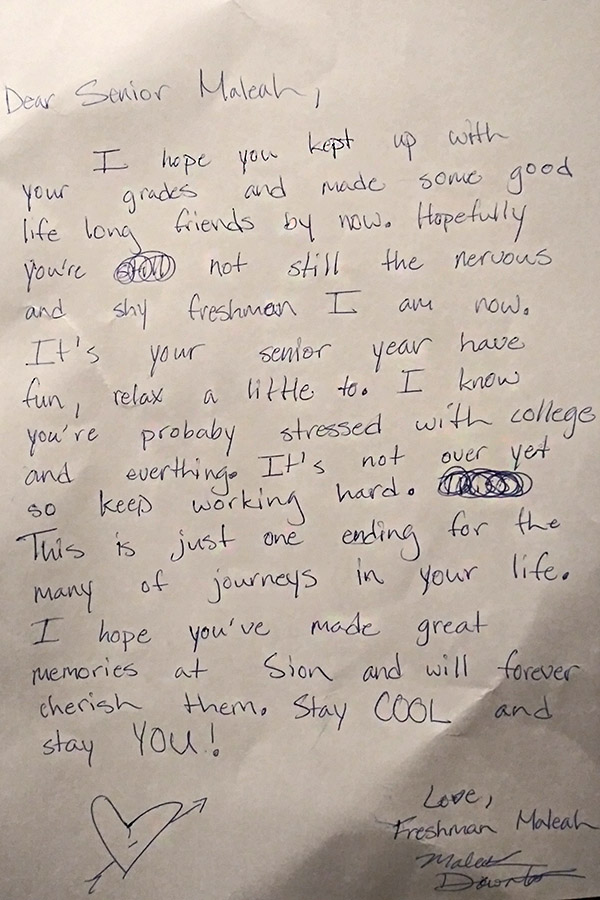 Dear Senior Maleah,
I hope you kept up with
your grades and made some good
life long friends by now. Hopefully
you're not still the nervous
and shy freshman I am now.
It's your senior year have
fun, relax a little to. I know
you're probaby stressed with college
and everthing. It's not over yet
so keep working hard.
This is just one ending for the
many of journeys in your life.
I hope you've made great
memories at Sion and will forever
cherish them. Stay COOL and
stay YOU!
Love,
Freshman Maleah